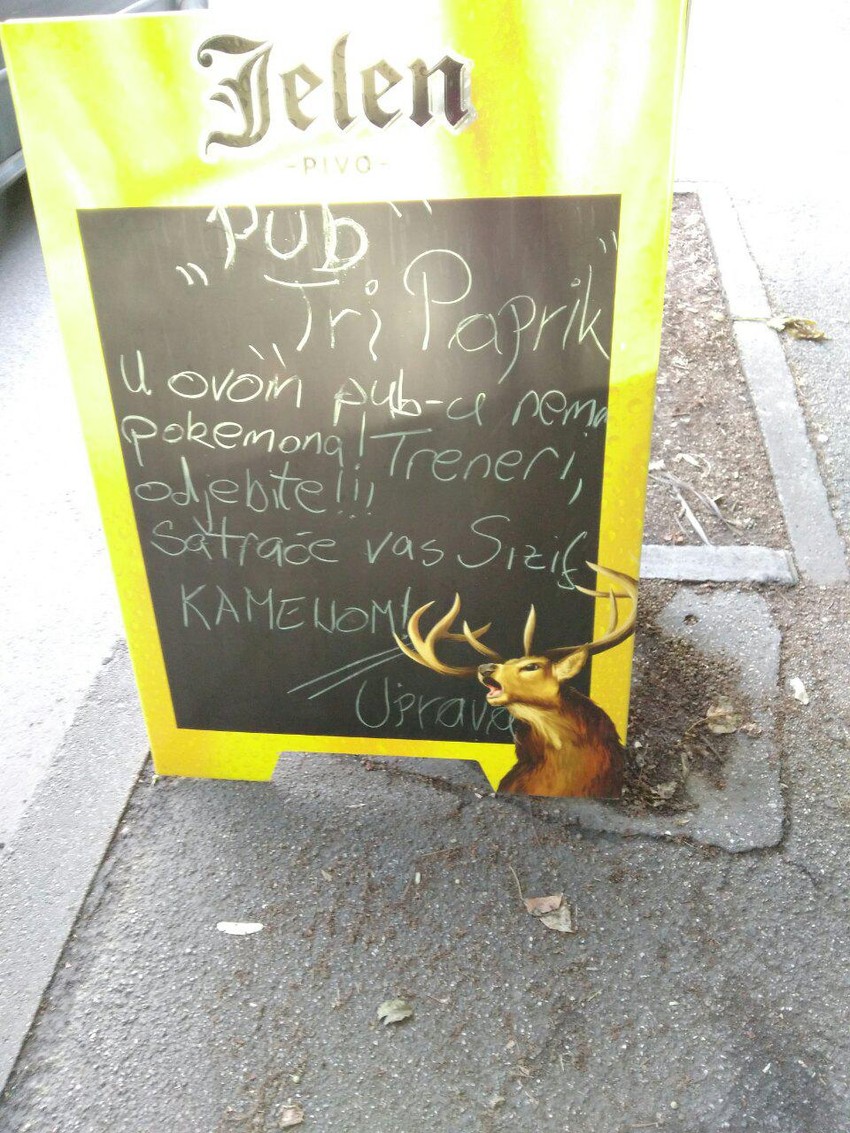 Jelen
-PIVO-
"Pub"
"Tri Paprik"
U ovom pub-u nema
pokemona! Treneri,
odjebite!!!
Satraće vas Sizif
KAMENOM!
Uprava